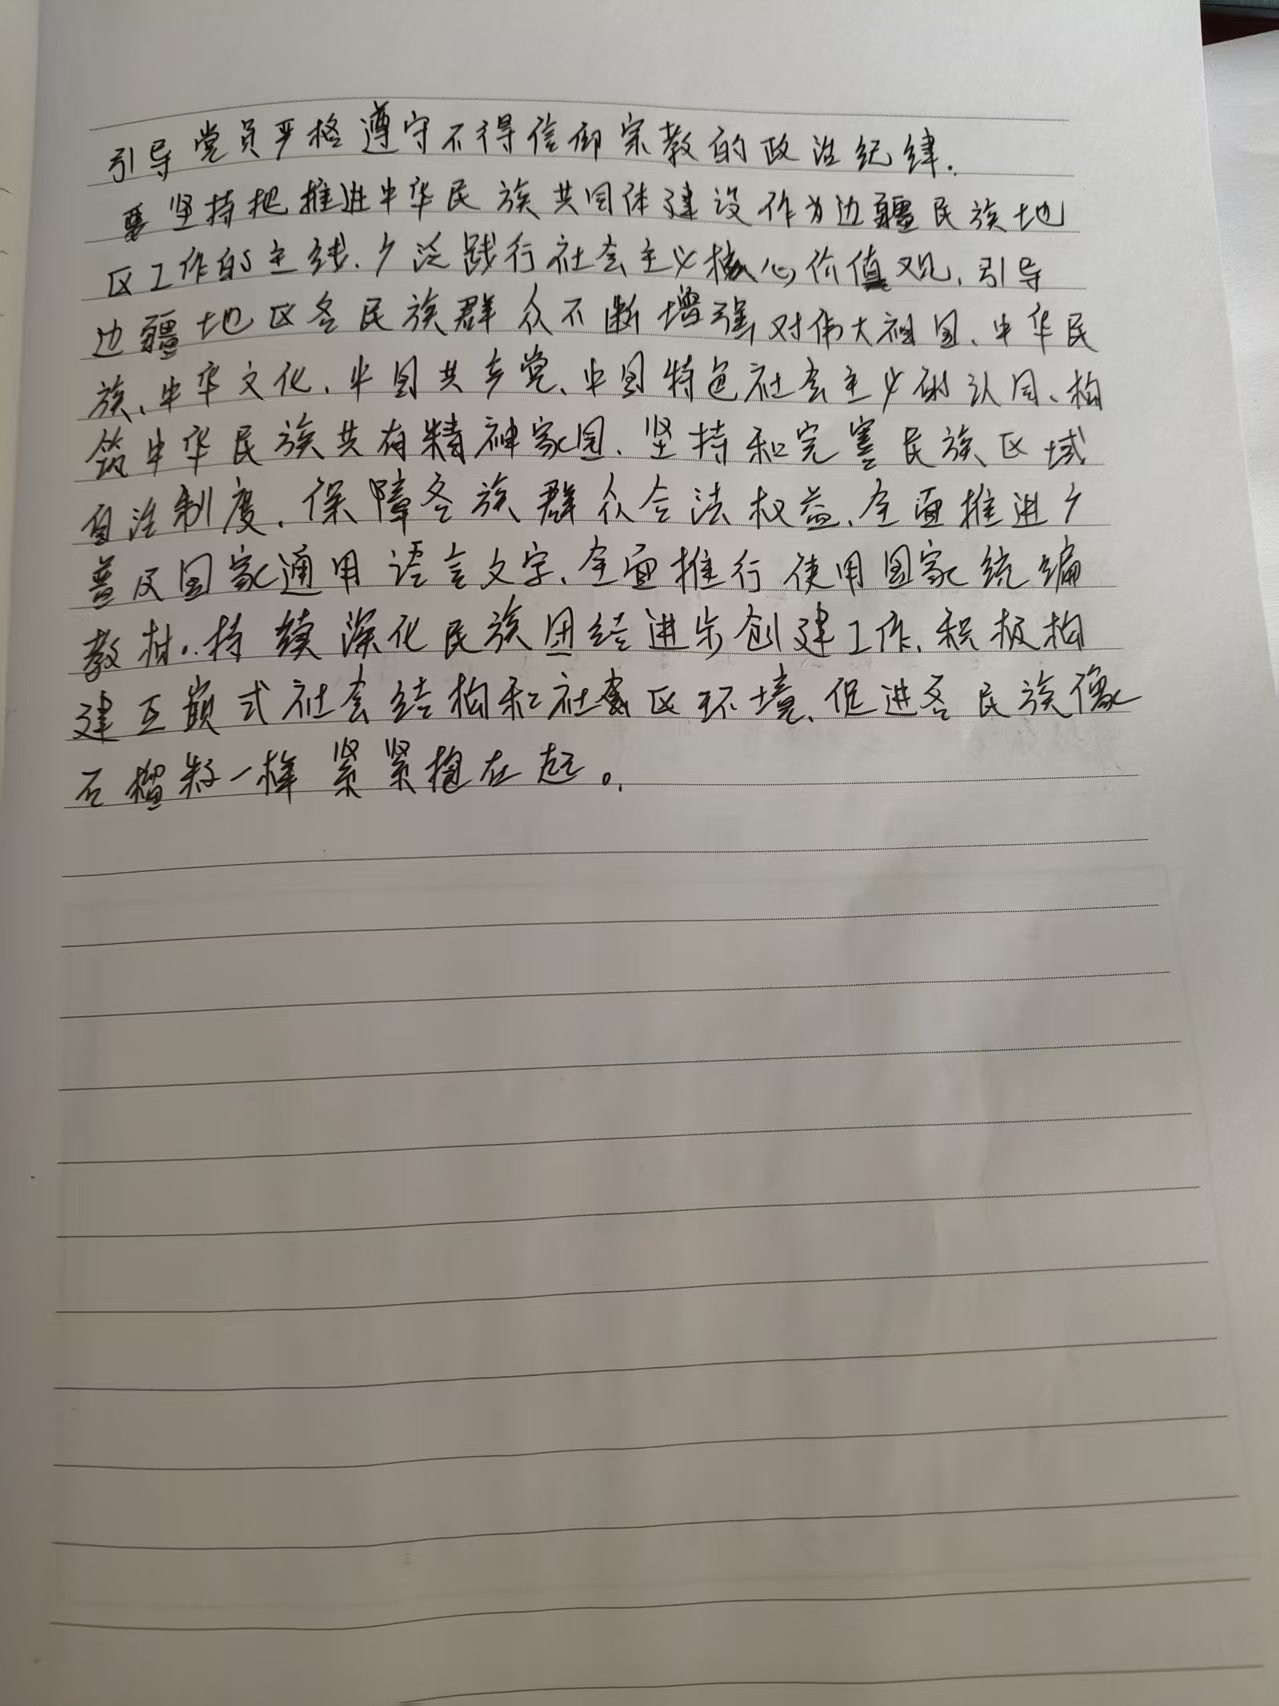 引导党员严格遵守不得信仰宗教的政治纪律.
要坚持把推进中华民族共同体建设作为边疆民族地
区工作的主线.广泛践行社会主义核心价值观,引导
边疆地区各民族群众不断增强对伟大祖国、中华民
族、中华文化、中国共产党、中国特色社会主义的认同、构
筑中华民族共有精神家园.坚持和完善民族区域
自治制度,保障各族群众合法权益、全面推进广
普及国家通用语言文字、全面推行使用国家统编
教材..持续深化民族团结进步创建工作,积极构
建互嵌式社会结构和社区环境、促进各民族像
石榴籽一样紧紧抱在起。